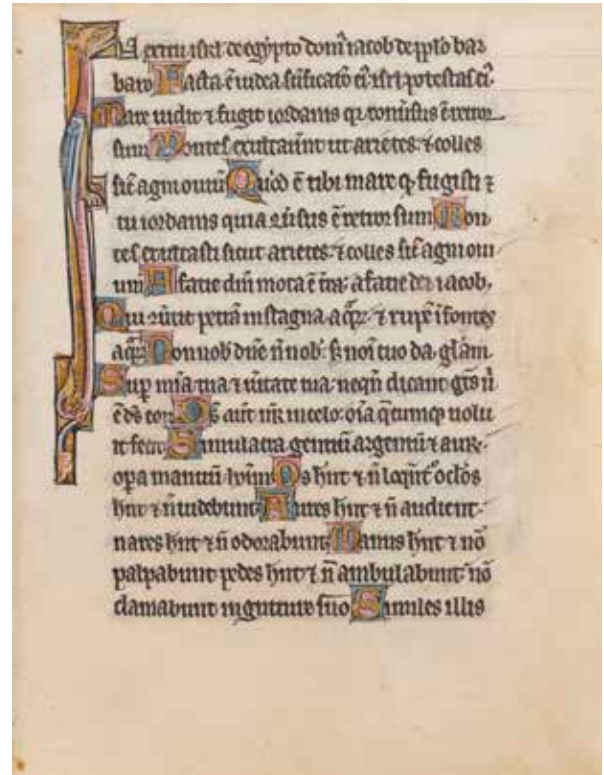 IN exitu isrl de egypto dom' iacob de pplo bar
baro Facta ē iudea scificatō ei' isrl potestas ei'.
Mare uidit ⁊ fugit iordanis q̄ conuersus ē retror
sum Montes exultauūt ut arietes: ⁊ colles
sic̄ agni ouiū Quid ē tibi mare q̄ fugisti ⁊
tu iordanis quia ɔuersus ē retrorsum Mon
tes exultasti sicut arietes. ⁊ colles sic̄ agni oui
um A facie dn̄i mota ē tr̄a: a facie dei iacob,
Qui ɔuertit petrā in stagna aq̄ꝝ. ⁊ rupē ī fontes
aq̄ꝝ Non nob' dn̄e n̄ nob': s; noī tuo da gl̄am
Sup mīa tua ⁊ ūitate tua: neqn̄ dicant gēs u'
ē ds̄ eoꝝ Ds̄ aūt nr̄ in celo: oīa q̄cumq; uolu
it fecit Simulacra gentiū argentū ⁊ auꝝ.
opa manuū hoīm Os hn̄t ⁊ n̄ loqn̄t' oc̄los
hn̄t ⁊ n̄ uidebunt Aures hn̄t ⁊ n̄ audient.
nares hn̄t ⁊ n̄ odorabunt Manus hn̄t ⁊ nō
palpabunt pedes hn̄t ⁊ n̄ ambulabunt nō
clamabunt in gutture suo Similes illis